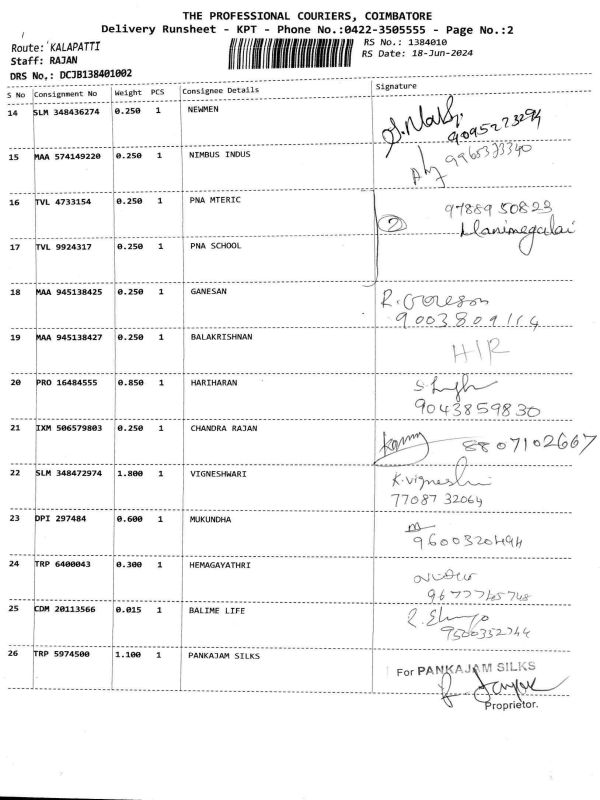 THE PROFESSIONAL COURIERS, COIMBATORE
Delivery Runsheet - KPT - Phone No.:0422-3505555 - Page No.:2
Route: KALAPATTI
Staff: RAJAN
DRS No,: DCJB138401002
RS No.: 1384010
RS Date: 18-Jun-2024
S No Consignment No Weight PCS Consignee Details Signature
14 SLM 348436274 0.250 1 NEWMEN
9095223294
15 MAA 574149220 0.250 1 NIMBUS INDUS
16 TVL 4733154 0.250 1 PNA MTERIC 9788950823
2 Manimegalai
17 TVL 9924317 0.250 1 PNA SCHOOL
18 MAA 945138425 0.250 1 GANESAN
9003809114
19 MAA 945138427 0.250 1 BALAKRISHNAN H/R
20 PRO 16484555 0.850 1 HARIHARAN
9043859830
21 IXM 506579803 0.250 1 CHANDRA RAJAN 8807102667
22 SLM 348472974 1.800 1 VIGNESHWARI
77087 32064
23 DPI 297484 0.600 1 MUKUNDHA
9600320494
24 TRP 6400043 0.300 1 HEMAGAYATHRI
25 CDM 20113566 0.015 1 BALIME LIFE
26 TRP 5974500 1.100 1 PANKAJAM SILKS
For PANKAJAM SILKS
Proprietor.